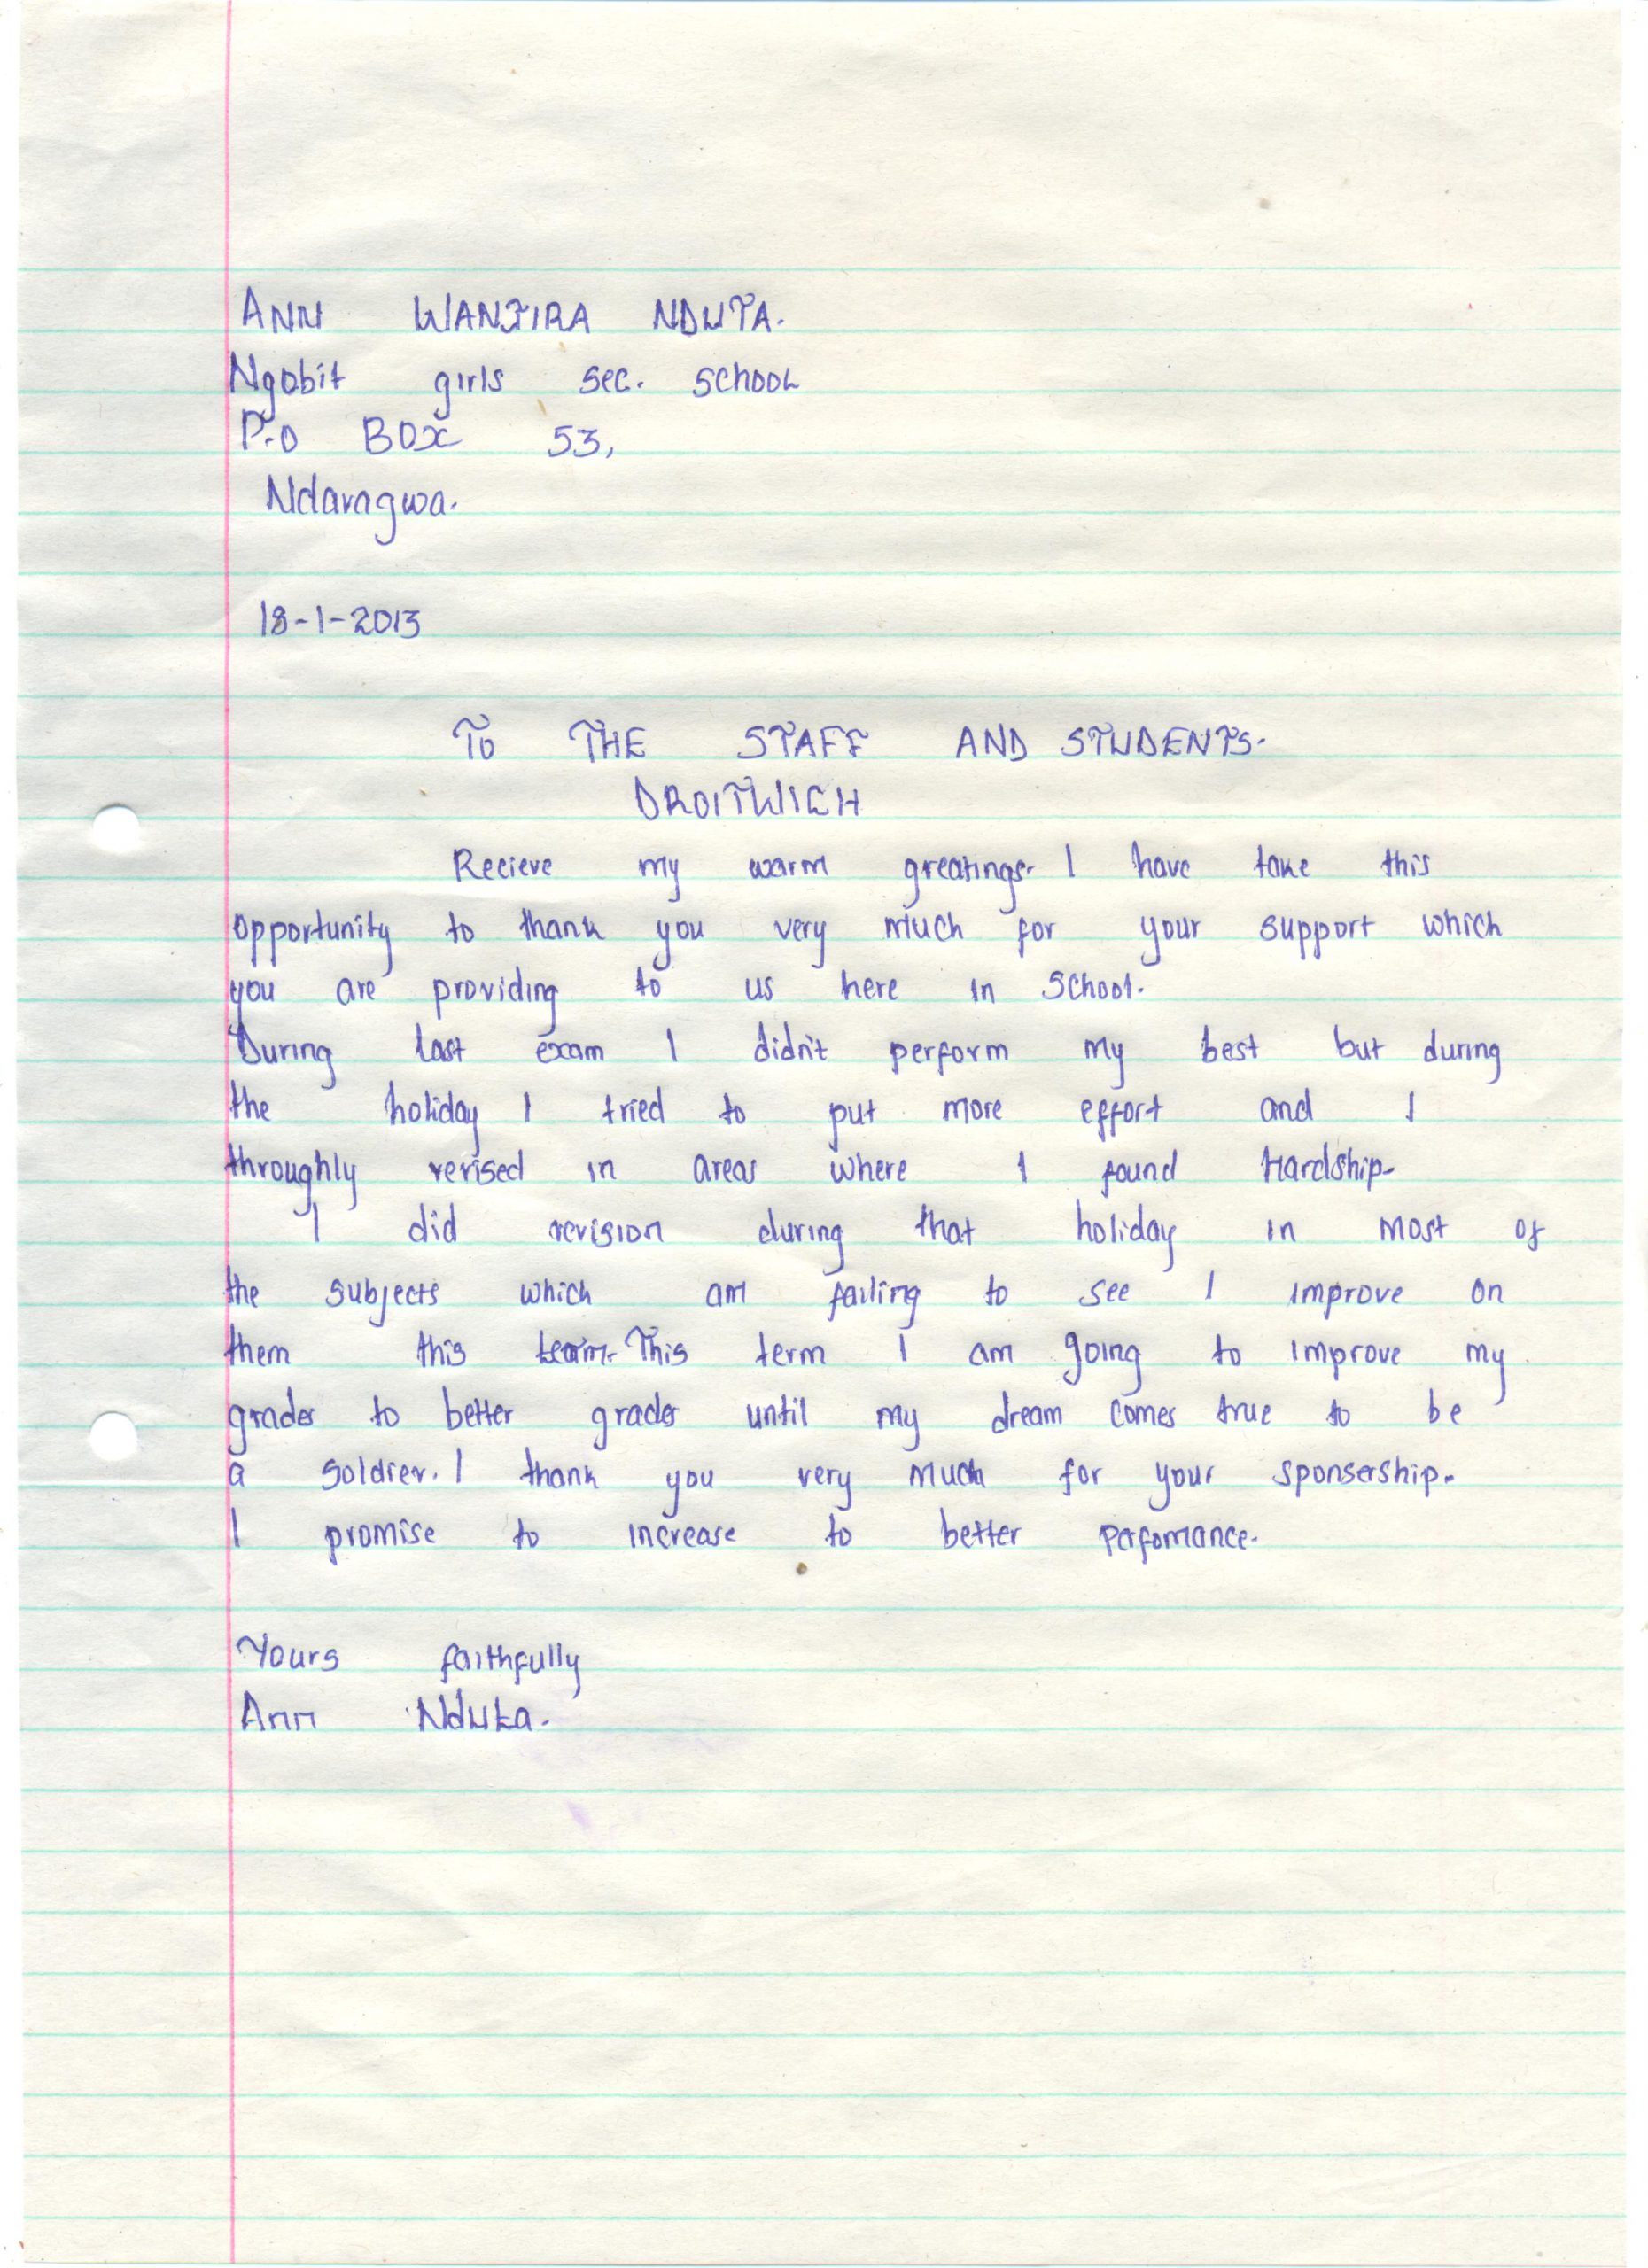 ANN WANJIRA NDUTA.
Ngobit girls sec. school
P.O BOX 53,
Ndaragwa.
18-1-2013
TO THE STAFF AND STUDENTS.
DROITWICH
Recieve my warm greatings. I have take this
opportunity to thank you very much for your support which
you are providing to us here in school.
During last exam I didn't perform my best but during
the holiday I tried to put more effort and I
throughly revised in areas where I found hardship.
I did revision during that holiday in most of
the subjects which am failing to see I improve on
them this team. This term I am going to improve my
grades to better grades until my dream comes true to be
a soldier. I thank you very much for your sponsership.
I promise to increase to better perfomance.
Yours faithfully
Ann Nduta.